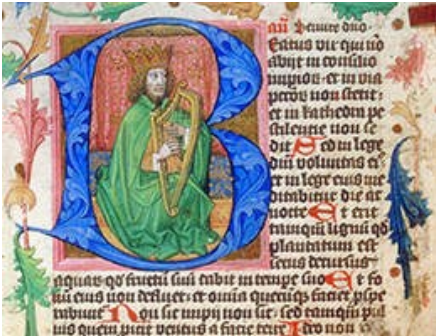 Beatus vir qui nō
abijt in consilio
impioꝝ et in via
pctoꝝ non stetit
et in kathedra pe
stilencie non se
dit Sed in lege
dūi voluntas ei
et in lege eius me
ditabitur die ac
nocte Et erit
tamqm lignū qd
plantatum est
secus decursus
aquaꝝ qd fructū suū dabit in tempe suo Et fo
liū eius non defluet et omnia quecūqꝫ faciet pspe
rabunt Non sic impij non sic sed tamqm pul
uis quem picit ventus a facie terre Ideo non